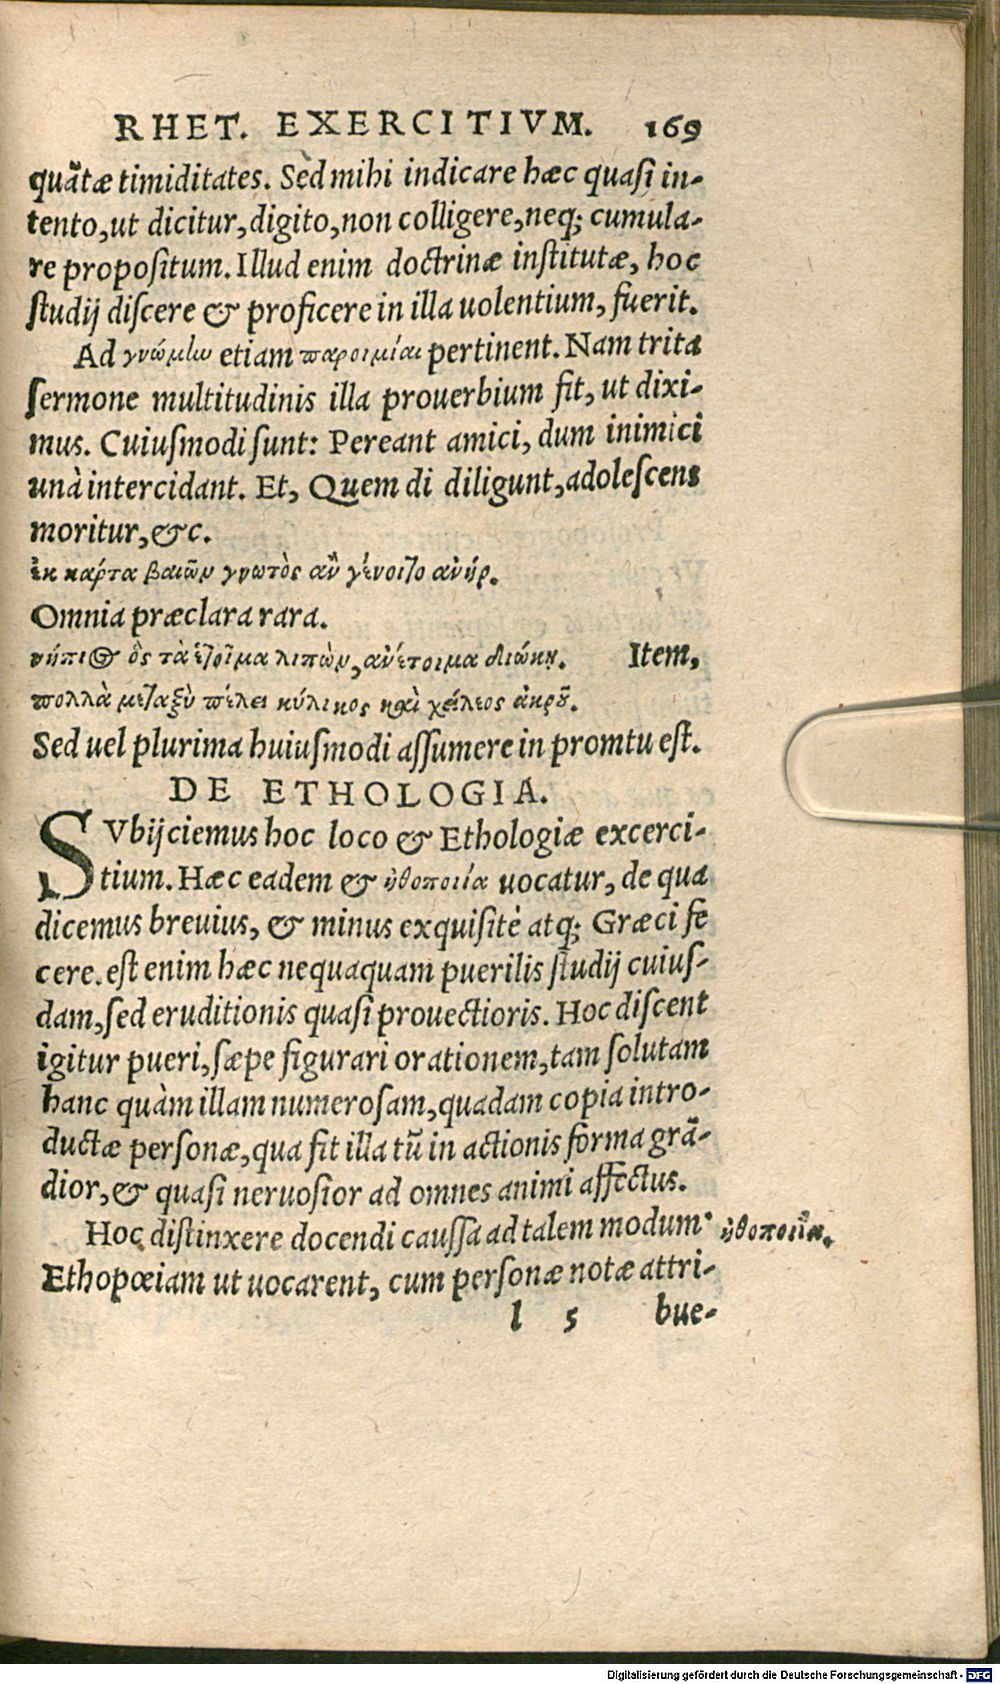 RHET. EXERCITIVM. 169
quātæ timiditates. Sed mihi indicare hæc quasi in-
tento, ut dicitur, digito, non colligere, neq; cumula-
re propositum. Illud enim doctrinæ institutæ, hoc
studij discere & proficere in illa uolentium, fuerit.
Ad γνώμίω etiam παροιμίαι pertinent. Nam trita
sermone multitudinis illa prouerbium fit, ut dixi-
mus. Cuiusmodi sunt: Pereant amici, dum inimici
unà intercidant. Et, Quem di diligunt, adolescens
moritur, &c.
ἐκ κάρτα βαιῶν γνωτὸς ἂν γένοιτο ἀνήρ.
Omnia præclara rara.
νήπιος ὃς τὰ ἑτοῖμα λιπὼν, ἀνέτοιμα διώκῃ. Item,
πολλὰ μεταξὺ πέλει κύλικος καὶ χείλεος ἄκρου.
Sed uel plurima huiusmodi assumere in promtu est.
DE ETHOLOGIA.
SVbijciemus hoc loco & Ethologiæ excerci-
tium. Hæc eadem & ἠθοποιία uocatur, de qua
dicemus breuius, & minus exquisitè atq; Græci fe
cere. est enim hæc nequaquam puerilis studij cuius-
dam, sed eruditionis quasi prouectioris. Hoc discent
igitur pueri, sæpe figurari orationem, tam solutam
hanc quàm illam numerosam, quadam copia intro-
ductæ personæ, qua fit illa tū in actionis forma grā-
dior, & quasi neruosior ad omnes animi affectus.
Hoc distinxere docendi caussa ad talem modum· ἠθοποιία.
Ethopœiam ut uocarent, cum personæ notæ attri-
l 5 bue-
Digitalisierung gefördert durch die Deutsche Forschungsgemeinschaft - DFG